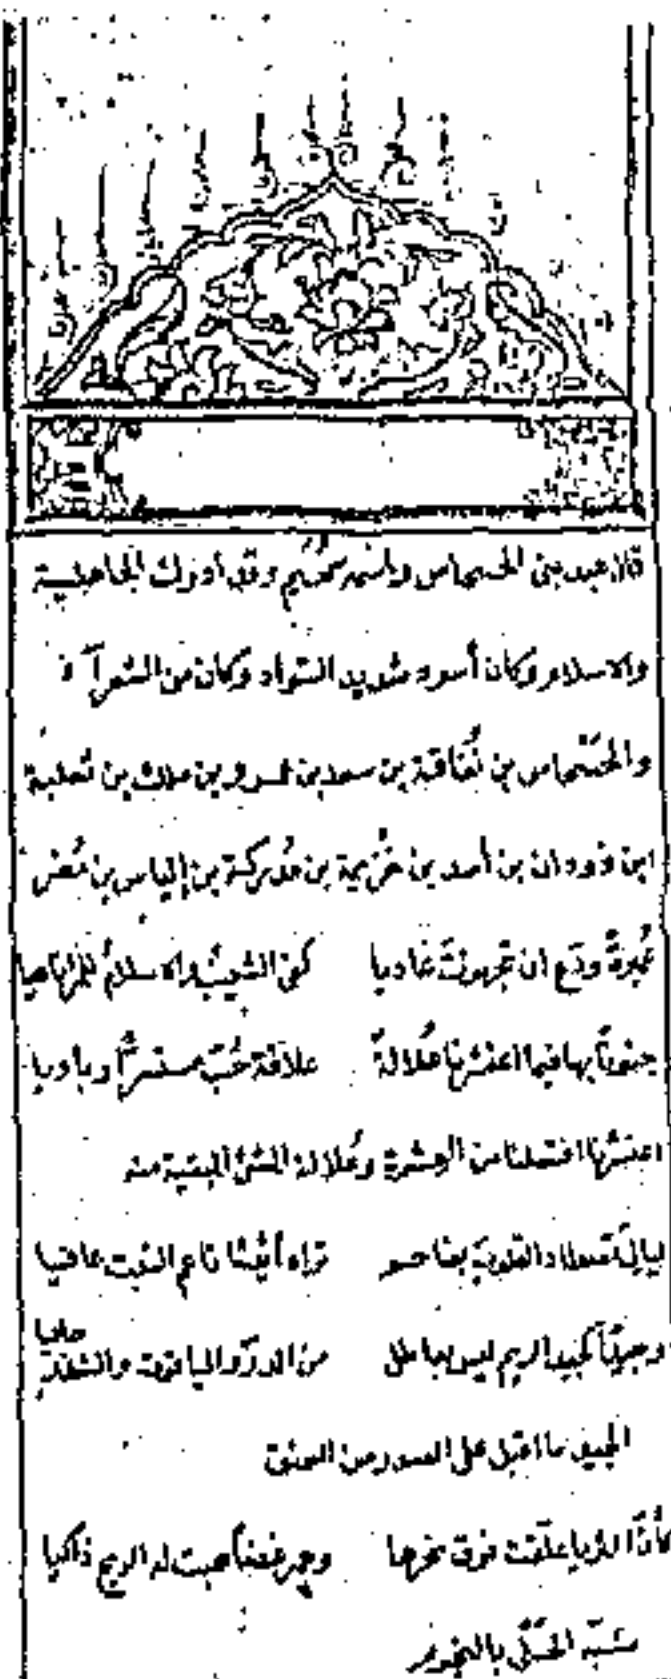 قال عبد بنى الحسحاس واسمه سُحَيْم وقد ادرك الجاهلية
والاسلام وكان أسود شديد السَّواد وكان من الشعرآ
والحَسْحاس بن نُفَاثة بن سعد بن عمرو بن ملك بن ثعلبة
ابن دودان بن أسد بن خُزيمة بن مُدركة بن إلياس بن مُضر
عُميرةَ ودّع ان تجهزتَ غاديا كفى الشيبُ والاسلامُ للمرء ناهيا
جنونًا بها فيما اعتشرنا عُلالةً علاقة حُبّ مستسرًّا وباديا
اعتشرنا افتعلنا من العِشرة وعُلالة الشئ البقية منه
ليالىَ تصطاد القلوبَ بفاحم تراه أثيثًا ناعم النبت عافيا
وجيدٍ كجيد الريم ليس بعاطل من الدرّ والياقوت والشذر حاليا
الجيد ما اقبل على الصدر من العنق
كأنّ الثريا علّقت فوق نحرها وجمر غضًا هبت له الريح ذاكيا
شبّه الحَلْى بالنجوم